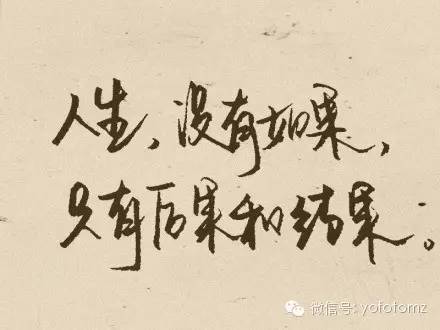 人生，没有如果，
只有后果和结果。
微信号: yofotomz